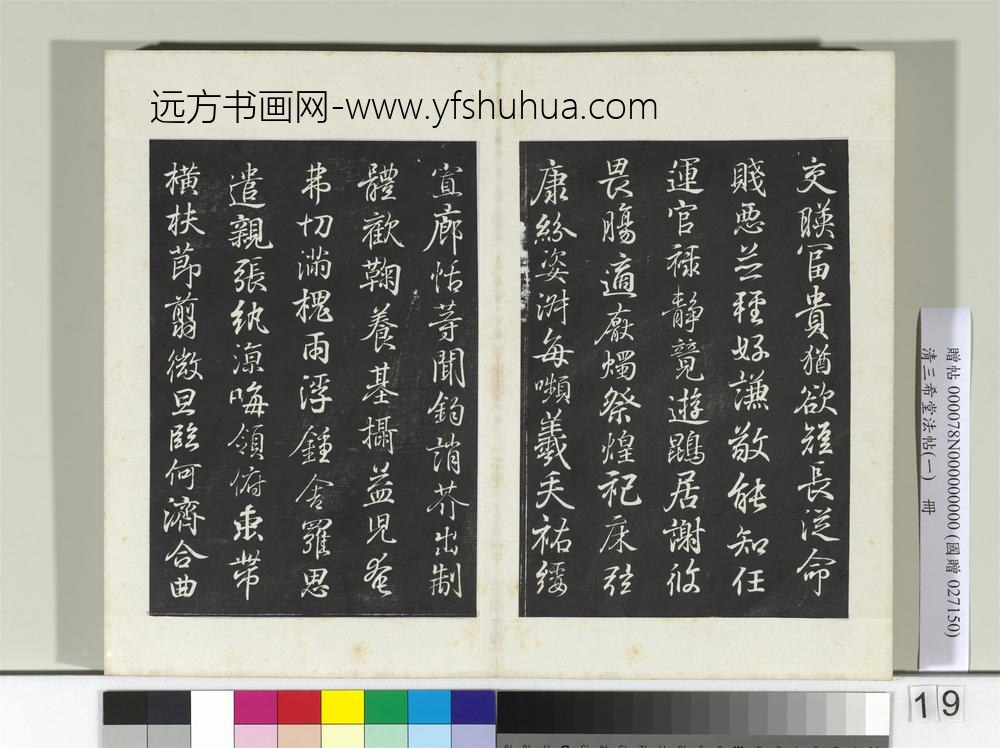 远方书画网-www.yfshuhua.com
交暎冨貴猶欲短長從命
賤惡並種好謙敬能知任
運官祿靜竟遊鵾居謝攸
畏 適 燭祭煌祀床
康紛姿淵每嚬羲矢祐綏
宣廊恬等聞鈞誚芥出制
體歡鞠養基攝益兒奄
弗切滿槐雨浮鍾舍羅思
遣親張紈涼晦領俯束帶
橫扶莭翦微旦臨何濟合曲
贈帖 000078N000000000 (國贈 027150)
清三希堂法帖(一) 冊
19